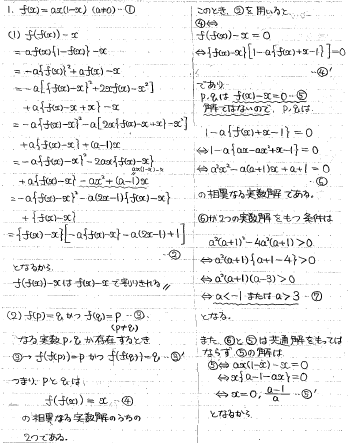 1. f(x)=ax(1-x) (a≠0)…①
(1) f(f(x))-x
=af(x){1-f(x)}-x
=-a{f(x)}²+af(x)-x
=-a[{f(x)-x}²+2xf(x)-x²]
+a{f(x)-x+x}-x
=-a{f(x)-x}²-a[2x{f(x)-x+x}-x²]
+a{f(x)-x}+(a-1)x
=-a{f(x)-x}²-2ax{f(x)-x}
+a{f(x)-x}-ax²+(a-1)x
ax(1-x)-x
=-a{f(x)-x}²-a(2x-1){f(x)-x}
+{f(x)-x}
={f(x)-x}[-a{f(x)-x}-a(2x-1)+1]
…②
となるから
f(f(x))-xはf(x)-xで割りきれる〃
(2) f(p)=q かつ f(q)=p …③、
(p≠q)
なる実数p,qが存在するとき
③→f(f(p))=p かつ f(f(q))=q…③′
つまり、pとqは、
f(f(x))=x …④
の相異なる実数解のうちの
2つである。
このとき、②を用いると
④⇔
f(f(x))-x=0
⇔{f(x)-x}[1-a{f(x)+x-1}]=0
…④′
であり
p,qは f(x)-x=0…⑤
の解ではないので、p,qは
1-a{f(x)+x-1}=0
⇔1-a{ax-ax²+x-1}=0
⇔a²x²-a(a+1)x+a+1=0
…⑥
の相異なる実数解である。
⑥が2つの実数解をもつ条件は
a²(a+1)²-4a²(a+1)>0
⇔a²(a+1){a+1-4}>0
⇔a²(a+1)(a-3)>0
⇔a<-1 または a>3 …⑦
となる。
また、⑥と⑤は共通解をもっては
ならず、⑤の解は
⑤⇔ax(1-x)-x=0
⇔x{a-1-ax}=0
⇔x=0, (a-1)/a …⑤′
となるから